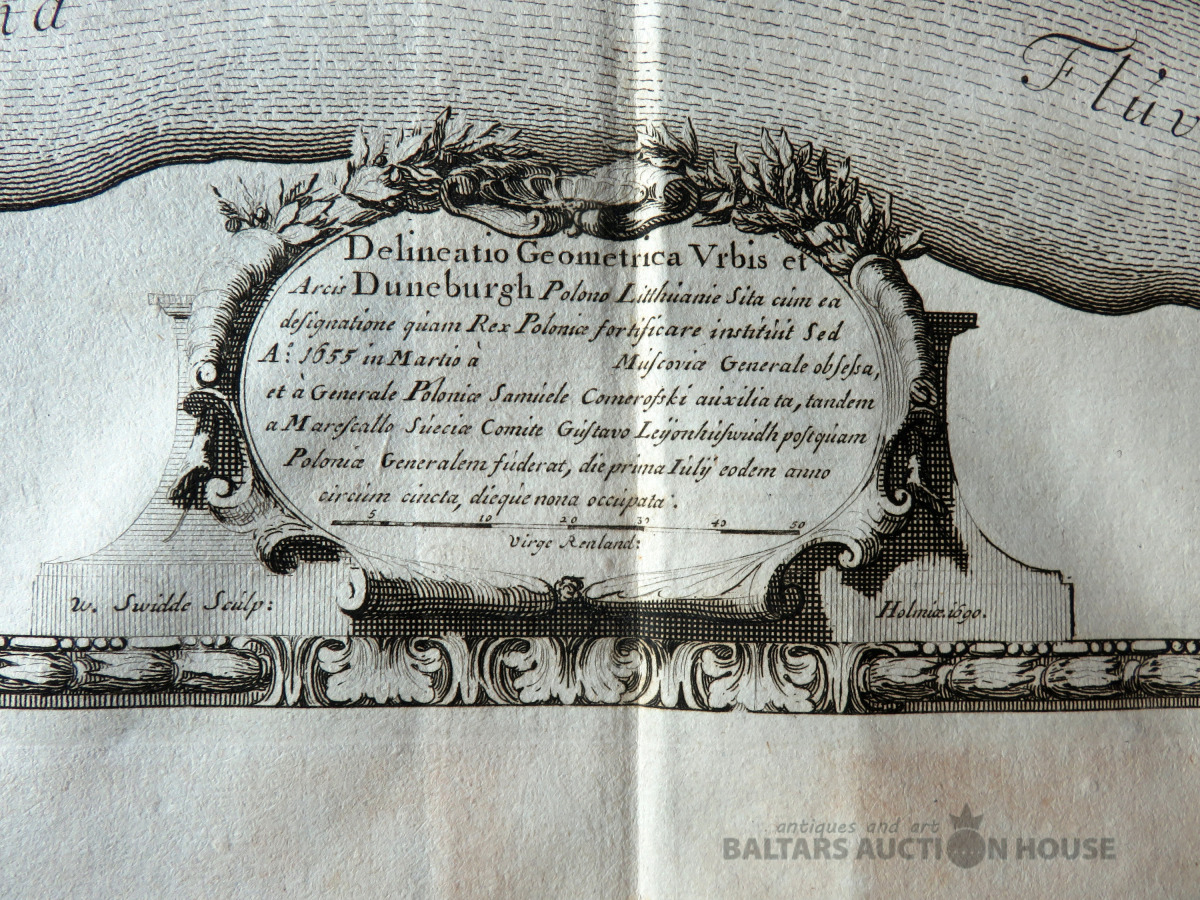 Flúv
Delineatio Geometrica Vrbis et
Arcis Duneburgh Polono Litthuaniæ Sita cúm ea
designatione qúam Rex Poloniæ fortificare institúit Sed
A:° 1655 in Martio à Múscoviæ Generale obsessa,
et à Generale Poloniæ Samúele Comerosski aúxiliata, tandem
a Marescallo Súeciæ Comite Gústavo Leÿonhúswúdh postqúam
Poloniæ Generalem fúderat, die prima Iúlÿ eodem anno
circúm cincta, dieqúe nona occúpata.
5 10 20 30 40 50
Virge Renland:
W. Swidde Scúlp:
Holmiæ. 1690.
antiques and art
BALTARS AUCTION HOUSE